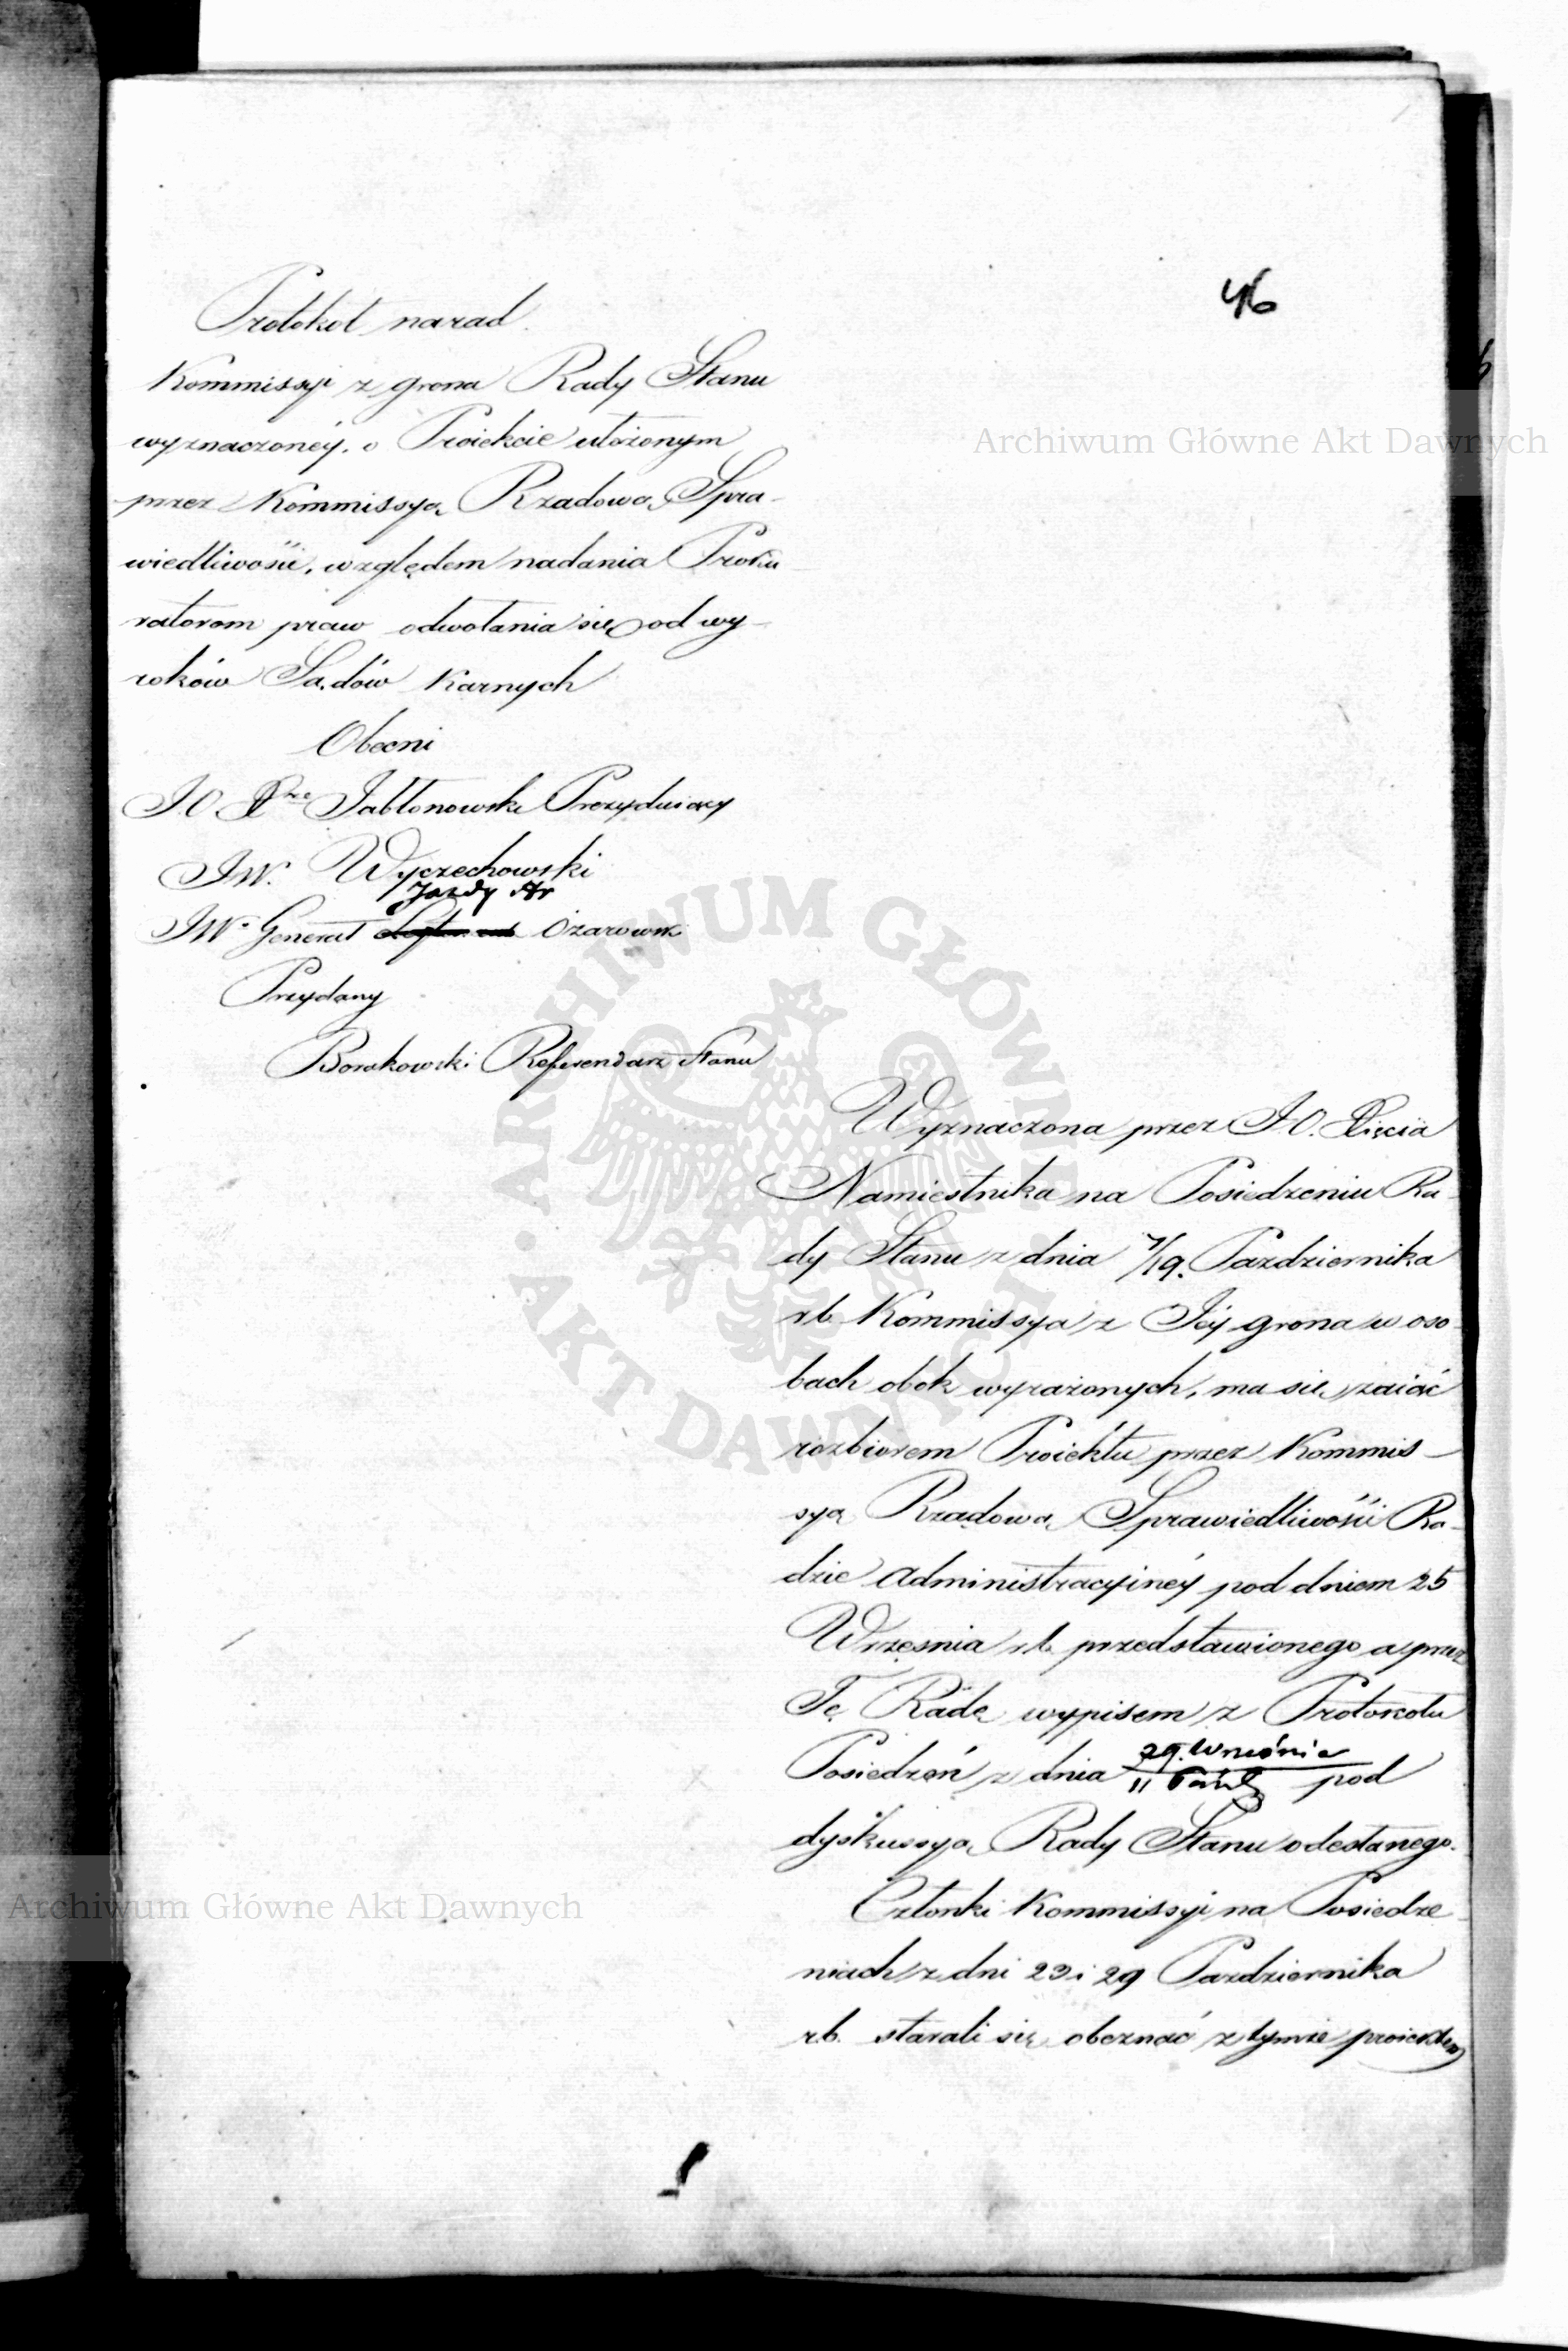 46
Protokół narad.
Kommissyi z grona Rady Stanu
wyznaczonéy, o Proiekcie ułożonym
przez Kommissyą Rządową Spra-
wiedliwości, względem nadania Proku
ratorom praw odwołania się od wy-
roków Sądów Karnych
Obecni
J.O. Xże Jabłonowski Prezyduiący
JW. Wyczechowski
Jazdy Hr
JW. Generał Ożarowski
Przydany
Borakowski Referendarz Stanu
Wyznaczona przez J.O. Xięcia
Namiestnika na Posiedzeniu Ra-
dy Stanu z dnia 7/19. Pazdziernika
r.b. Kommissya z Jéy grona w oso-
bach obok wyrażonych, ma się zaiąć
rozbiorem Proiektu przez Kommis-
syą Rządową Sprawiedliwości Ra-
dzie Administracyinéy pod dniem 25
Września r.b. przedstawionego a przez
Tę Radę wypisem z Protokołu
Posiedzeń z dnia 29. Września
11 Paźdz pod
dyskussyą Rady Stanu odesłanego.
Członki Kommissyi na Posiedze-
niach z dni 23 i 29 Pazdziernika
r.b. starali się obeznać z tymże proiektem
Archiwum Główne Akt Dawnych
Archiwum Główne Akt Dawnych
ARCHIWUM GŁÓWNE · AKT DAWNYCH ·